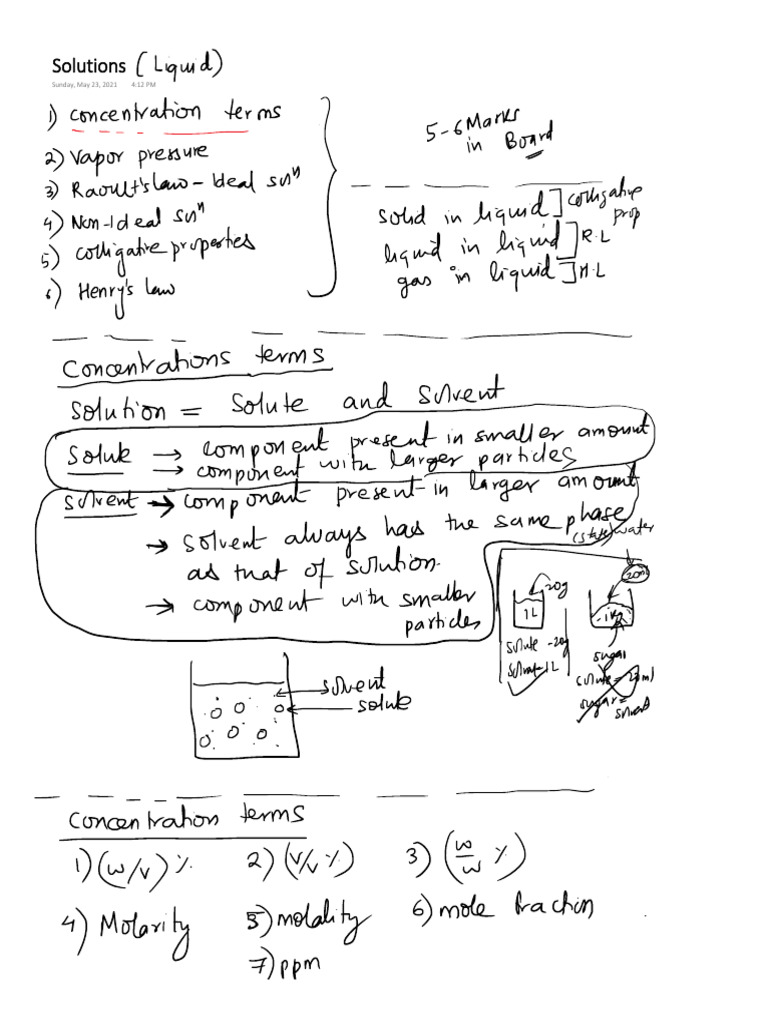 Solutions (Liquid)
Sunday, May 23, 2021 4:12 PM
1) Concentration terms
2) Vapor pressure
3) Raoult's law - Ideal solⁿ
4) Non-Ideal solⁿ
5) Colligative properties
6) Henry's law
5-6 Marks
in Board
solid in liquid] colligative prop
liquid in liquid] R.L
gas in liquid] H.L
Concentrations terms
Solution = Solute and Solvent
Solute → Component present in smaller amount
→ component with larger particles
Solvent → component present in larger amount
→ solvent always has the same phase
(state)
as that of solution.
→ component with smaller
particles
20g
1L
solute - 20g
solvent - 1L
water
20ml
1kg
sugar
solute = 20ml
sugar =
solvent
solvent
solute
Concentration terms
1) (w/v) % 2) (v/v %) 3) (w/w %)
4) Molarity 5) molality 6) mole fraction
7) ppm